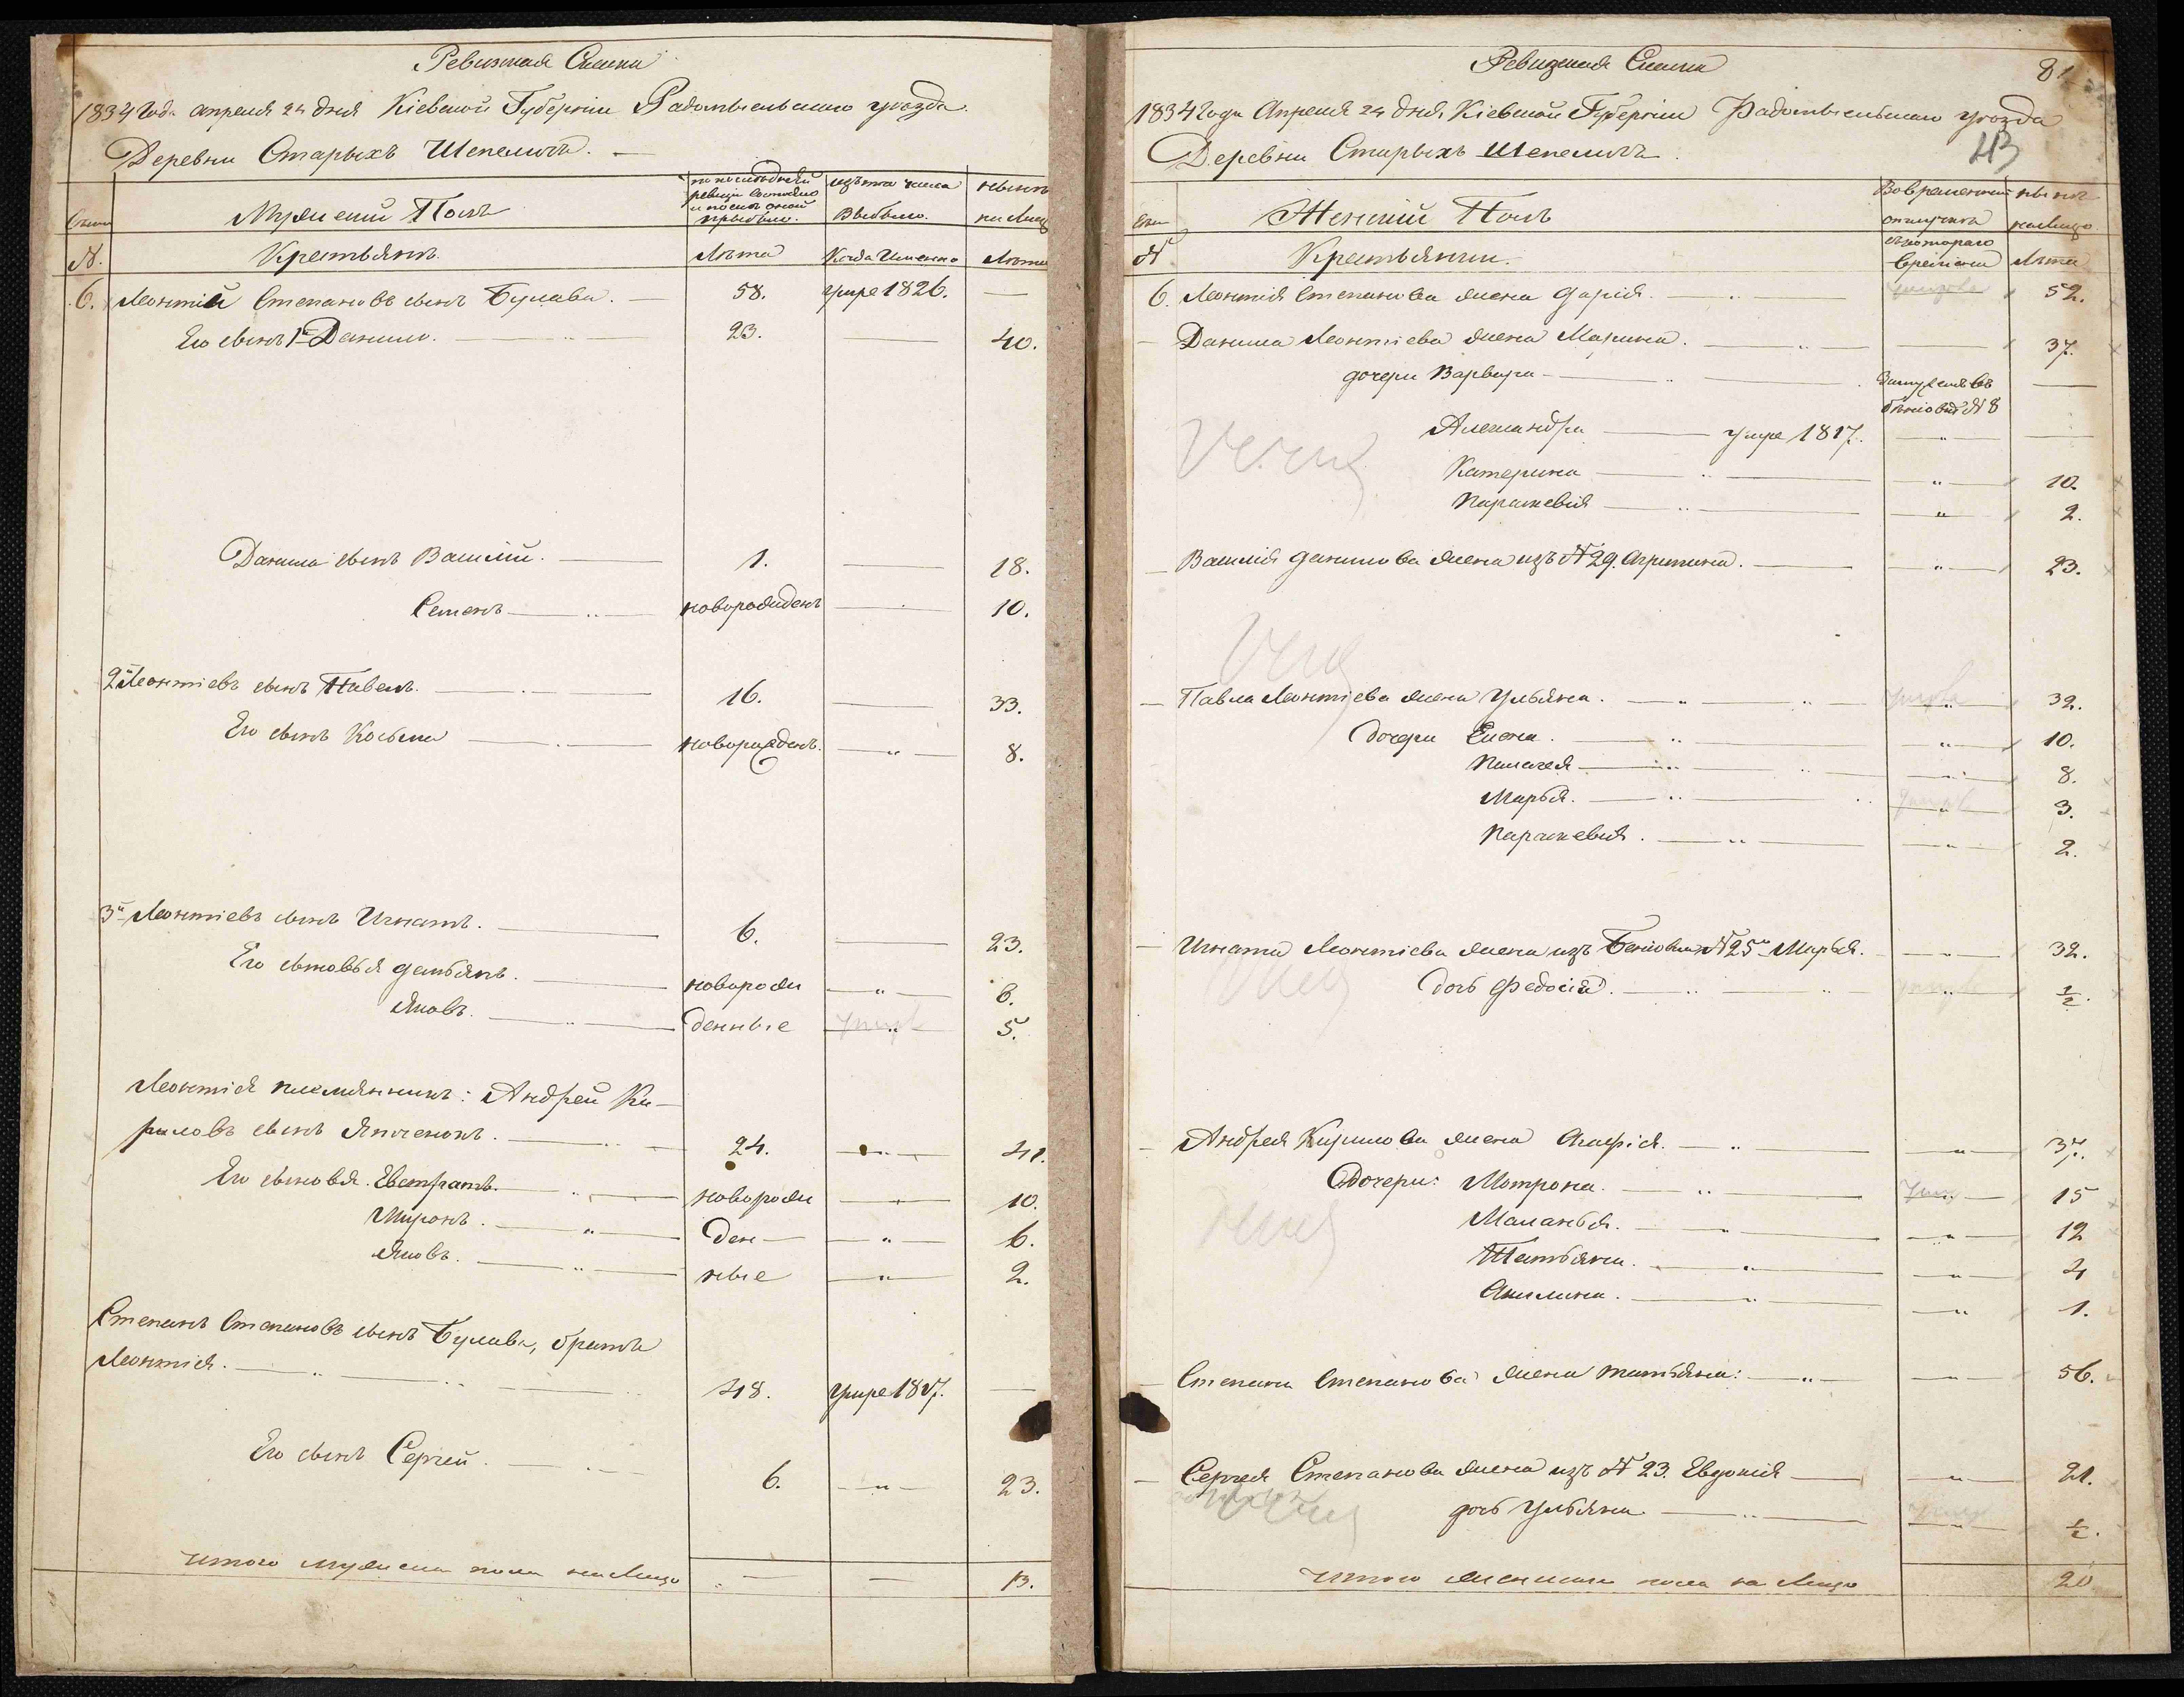 Ревизская Сказка
1834 года апреля 24 дня Кіевской Губерніи Радомысльскаго уѣзда
Деревни Старыхъ Шепеличъ. —
Семьи
Мужескій Полъ
по последней ревизіи состояло и после оной прибыло.
изъ того числа Выбыло.
ныне на лицо
№.
Крестьянъ.
Лѣта
Когда Именно
Лѣта
6. Леонтій Степановъ сынъ Булава. — 58. умре 1826. —
Его сынъ 1й Данило. — 23. — 40.
Данила сынъ Василій. — 1. — 18.
Семенъ — новорожденъ — 10.
2й Леонтіевъ сынъ Павелъ. — 16. — 33.
Его сынъ Косьма — новорожденъ. — " — 8.
3й Леонтіевъ сынъ Игнатъ. — 6. — 23.
Его сыновья Демьянъ. — новорож — " — 6.
Яковъ. — денные — " — 5.
Леонтія племянникъ: Андрей Ки-
риловъ сынъ Япченокъ. — 24. — " — 41.
Его сыновья. Евстратъ. — новорож — " — 10.
Миронъ. — ден — " — 6.
Яковъ. — ные — " — 2.
Степанъ Степановъ сынъ Булава, братъ
Леонтія. — 48. умре 1817. —
Его сынъ Сергей. — 6. — " — 23.
Итого мужеска пола на лицо — — 13.
Ревизская Сказка
81
1834 года Апреля 24 дня Кіевской Губерніи Радомысльскаго уѣзда
Деревни Старыхъ Шепеличъ.
43
Семьи
Женскій Полъ
Во временной отлучкѣ
ныне на лицо.
№
Крестьянки.
съ котораго времени
Лѣта
6. Леонтія Степанова жена Дарія. — 52.
— Данила Леонтіева жена Марина. — 37.
дочери Варвара — Замужемъ въ —
Бѣновкѣ № 8
Александра — умре 1817. — " —
Катерина — " — 10.
Параскевія — " — 2.
— Василія Данилова жена изъ № 29. Агрипина. — " — 23.
— Павла Леонтіева жена Ульяна. — " — 32.
дочери Елена. — " — 10.
Пелагея — " — 8.
Марья. — " — 3.
Параскевія. — " — 2.
— Игната Леонтіева жена изъ Беновки № 25й Марья. — " — 32.
дочь Федосія. — " — ½.
— Андрея Кирилова жена Агафія. — " — 37.
дочери: Мотрона. — " — 15
Маланья. — " — 12
Татьяна. — " — 4
Акилина. — " — 1.
— Степана Степанова жена Татьяна: — " — 56.
— Сергея Степанова жена изъ № 23. Евдокія — " — 21.
дочь Ульяна — " — ½.
Итого женскаго пола на лицо 20